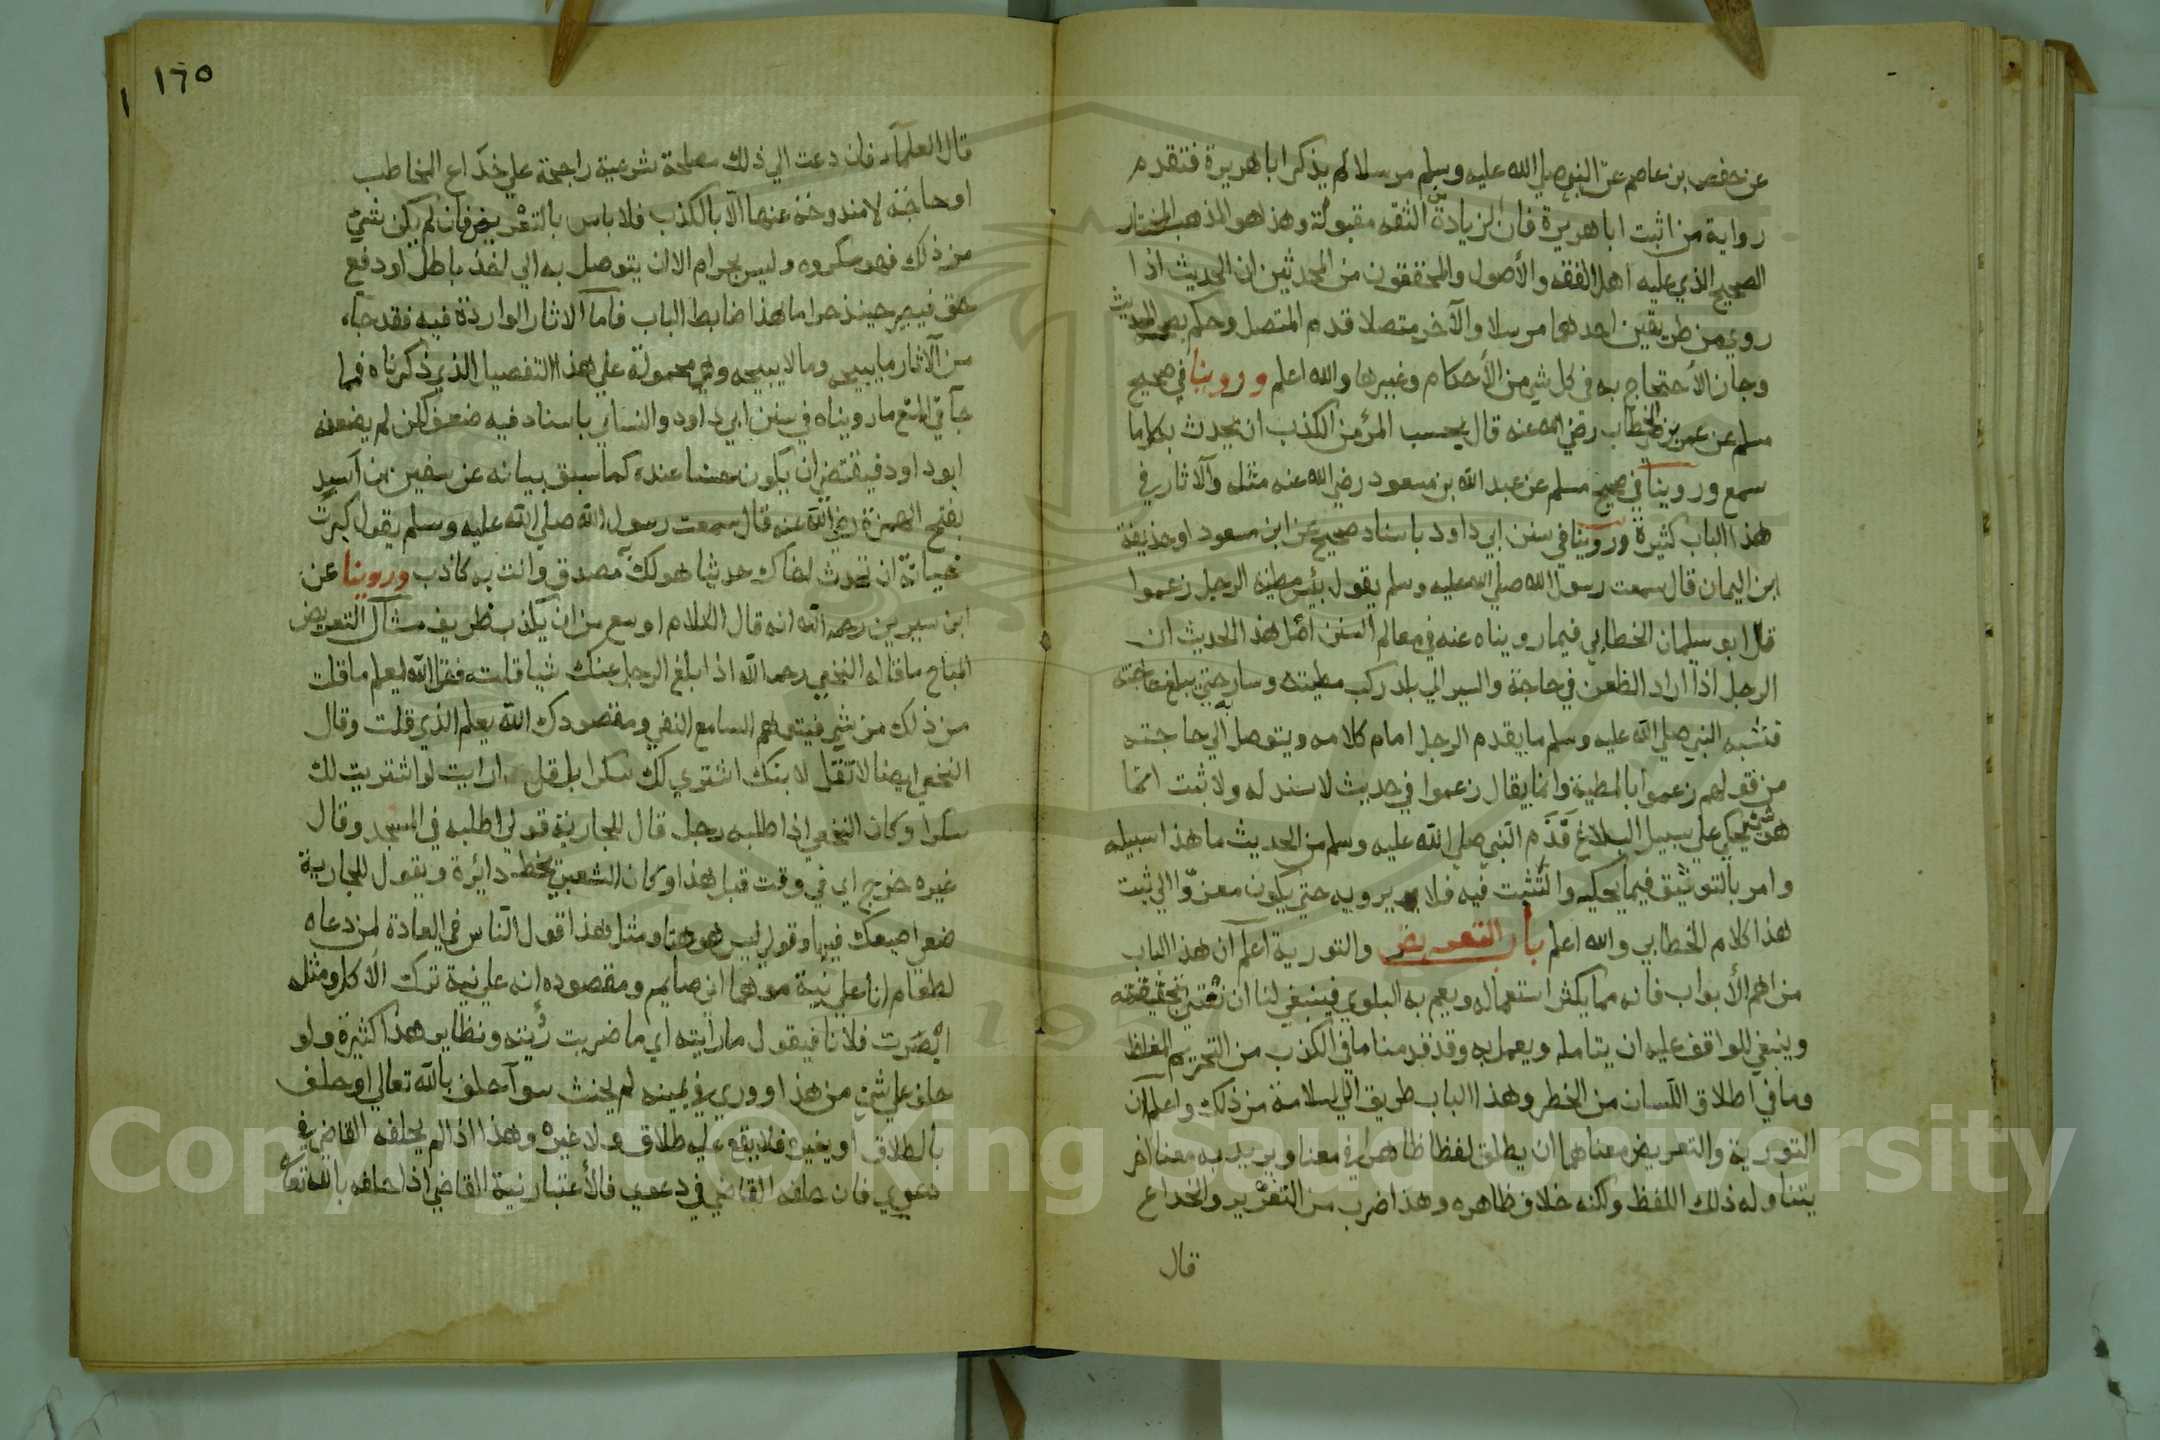 عن حفص بن عاصم عن النبي صلي الله عليه وسلم مرسلا لم يذكر ابا هريرة فتقدم
رواية من اثبت ابا هريرة فان الزيادة من الثقه مقبولة وهذا هو المذهب المختار
الصحيح الذي عليه اهل الفقه والأصول والمحققون من المحدثين ان الحديث اذا
روي من طريقين احدهما مرسلا والآخر متصلا قدم المتصل وحكم بصحة الحديث
وجاز الأحتجاج به في كل شي من الأحكام وغيرها والله اعلم وروينا في صحيح
مسلم عن عمر بن الخطاب رضي الله عنه قال بحسب المرء من الكذب ان يحدث بكل ما
سمع وروينا في صحيح مسلم عن عبد الله بن مسعود رضي الله عنه مثله والآثار في
هذا الباب كثيرة وروينا في سنن ابي داود باسناد صحيح عن ابن مسعود او حذيفة
ابن اليمان قال سمعت رسول الله صلي الله عليه وسلم يقول بئس مطية الرجل زعموا
قال ابو سليمان الخطابي فيما رويناه عنه في معالم السنن اصل هذا الحديث ان
الرجل اذا اراد الظعن في حاجة والسير الي بلد ركب مطيته وسار حتي يبلغ حاجته
فشبه النبي صلي الله عليه وسلم ما يقدم الرجل امام كلامه ويتوصل به الي حاجته
من قولهم زعموا بالمطية وانما يقال زعموا في حديث لا سند له ولا ثبت انما
هو شي يحكي علي سبيل البلاغ فذم النبي صلي الله عليه وسلم من الحديث ما هذا سبيله
وامر بالتوثيق فيما يحكيه والتثبت فيه فلا يرويه حتي يكون معزوا الي ثبت
هذا كلام الخطابي والله اعلم باب التعريض والتورية اعلم ان هذا الباب
من اهم الأبواب فانه مما يكثر استعماله ويعم به البلوي فينبغي لنا ان نعتني بتحقيقه
وينبغي للواقف عليه ان يتامله ويعمل به وقد قدمنا ما في الكذب من التحريم الغلظ
وما في اطلاق اللسان من الخطر وهذا الباب طريق الي السلامة من ذلك واعلم ان
التورية والتعريض معناهما ان يطلق لفظا ظاهرا في معنا ويريد به معنا اخر
يتناوله ذلك اللفظ ولكنه خلاف ظاهره وهذا ضرب من التغرير والخداع
قال
١٦٥
١
قال العلماء فان دعت الي ذلك مصلحة شرعية راجحة علي خداع المخاطب
او حاجة لا مندوحة عنها الا بالكذب فلا باس بالتعريض فان لم يكن شي
من ذلك فهو مكروه وليس بحرام الا ان يتوصل به الي اخذ باطل او دفع
حق فيصير حينئذ حراما هذا ضابط الباب فاما الاثار الواردة فيه فقد جاء
من الآثار ما يبيحه وما لا يبيحه وهي محمولة علي هذا التفصيل الذي ذكرناه فما
جاء في المنع ما رويناه في سنن ابي داود والنسائي باسناد فيه ضعف لكن لم يضعفه
ابو داود فيقتضي ان يكون حسنا عنده كما سبق بيانه عن سفين بن اسيد
بفتح الهمزة رضي الله عنه قال سمعت رسول الله صلي الله عليه وسلم يقول كبرت
خيانة ان تحدث اخاك حديثا هو لك مصدق وانت به كاذب وروينا عن
ابن سيرين رحمه الله انه قال الكلام اوسع من ان يكذب ظريف مثال التعريض
المباح ما قاله النخعي رحمه الله اذا بلغ الرجل عنك شيا قلته فقل الله يعلم ما قلت
من ذلك من شي فيتوهم السامع النفي ومقصودك الله يعلم الذي قلت وقال
النخعي ايضا لا تقل لابنك اشتري لك سكرا بل قل ارايت لو اشتريت لك
سكرا وكان النخعي اذا طلبه رجل قال للجارية قولي اطلبه في المسجد وقال
غيره خرج ابي في وقت قبل هذا وكان الشعبي يخط دائرة ويقول للجارية
ضعي اصبعك فيها وقولي ليس هو هنا ومثل هذا قول الناس في العادة لمن دعاه
لطعام انا علي نية موهما انه صايم ومقصوده انه علي نية ترك الاكل ومثله
ابصرت فلانا فيقول ما رايته اي ما ضربت رئته ونظاير هذا كثيرة ولو
حلف علي شي من هذا ووري في يمينه لم يحنث سوآ حلف بالله تعالي او حلف
بالطلاق او بغيره فلا يقع عليه طلاق ولا غيره وهذا اذا لم يحلفه القاضي في
دعوي فان حلفه القاضي في دعوي فالأعتبار نية القاضي اذا حلفه بالله تعا
Copyright © King Saud University
1957